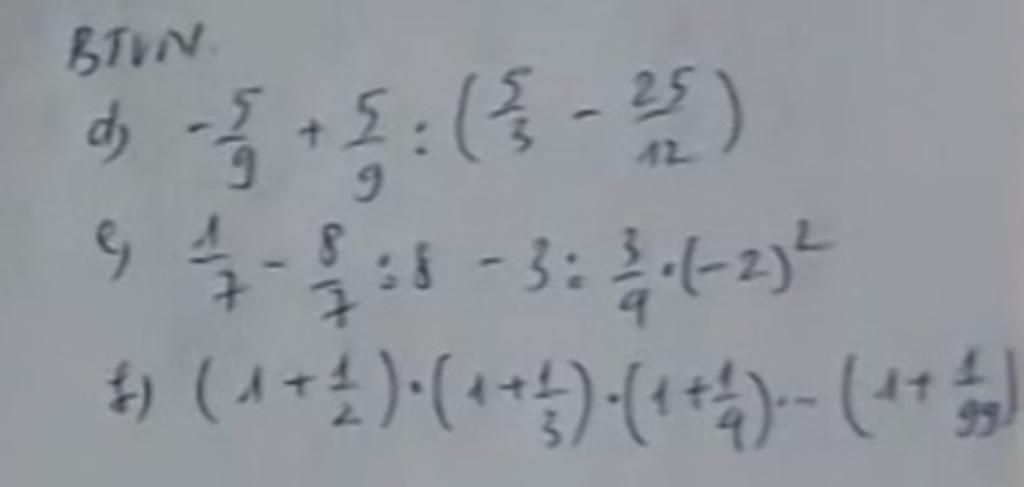 BTVN
d) -5/9 + 5/9 : (5/3 - 25/12)
e) 1/7 - 8/7 : 8 - 3 : 3/4 . (-2)²
f) (1 + 1/2) . (1 + 1/3) . (1 + 1/4) ... (1 + 1/99)